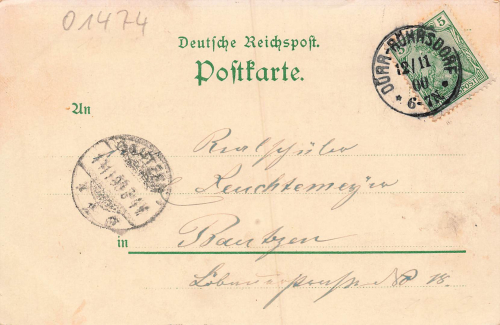 01474
Deutsche Reichspost.
Postkarte.
DÜRR-RÖHRSDORF
12/11
00
* 6-7N. *
5
An
BAUTZEN
Realschüler
Leuchtemeyer
in Bautzen
Löbauerstraße No 18.